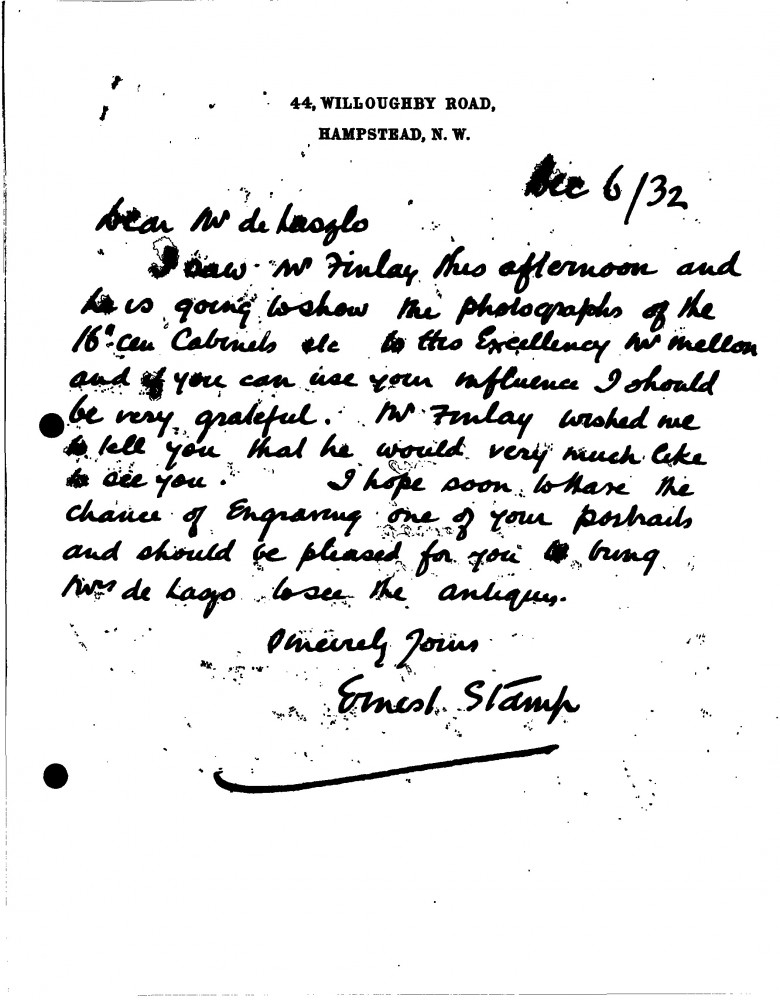 44, WILLOUGHBY ROAD,
HAMPSTEAD, N. W.
Dec 6/32
Dear Mr de Laszlo
I saw Mr Finlay this afternoon and
he is going to show the photographs of the
16th cen Cabinets etc to His Excellency Mr Mellon
and if you can use your influence I should
be very grateful. Mr Finlay wished me
to tell you that he would very much like
to see you. I hope soon to have the
chance of Engraving one of your portraits
and should be pleased for you to bring
Mrs de Laszo to see the antiques.
Sincerely Yours
Ernest Stamp